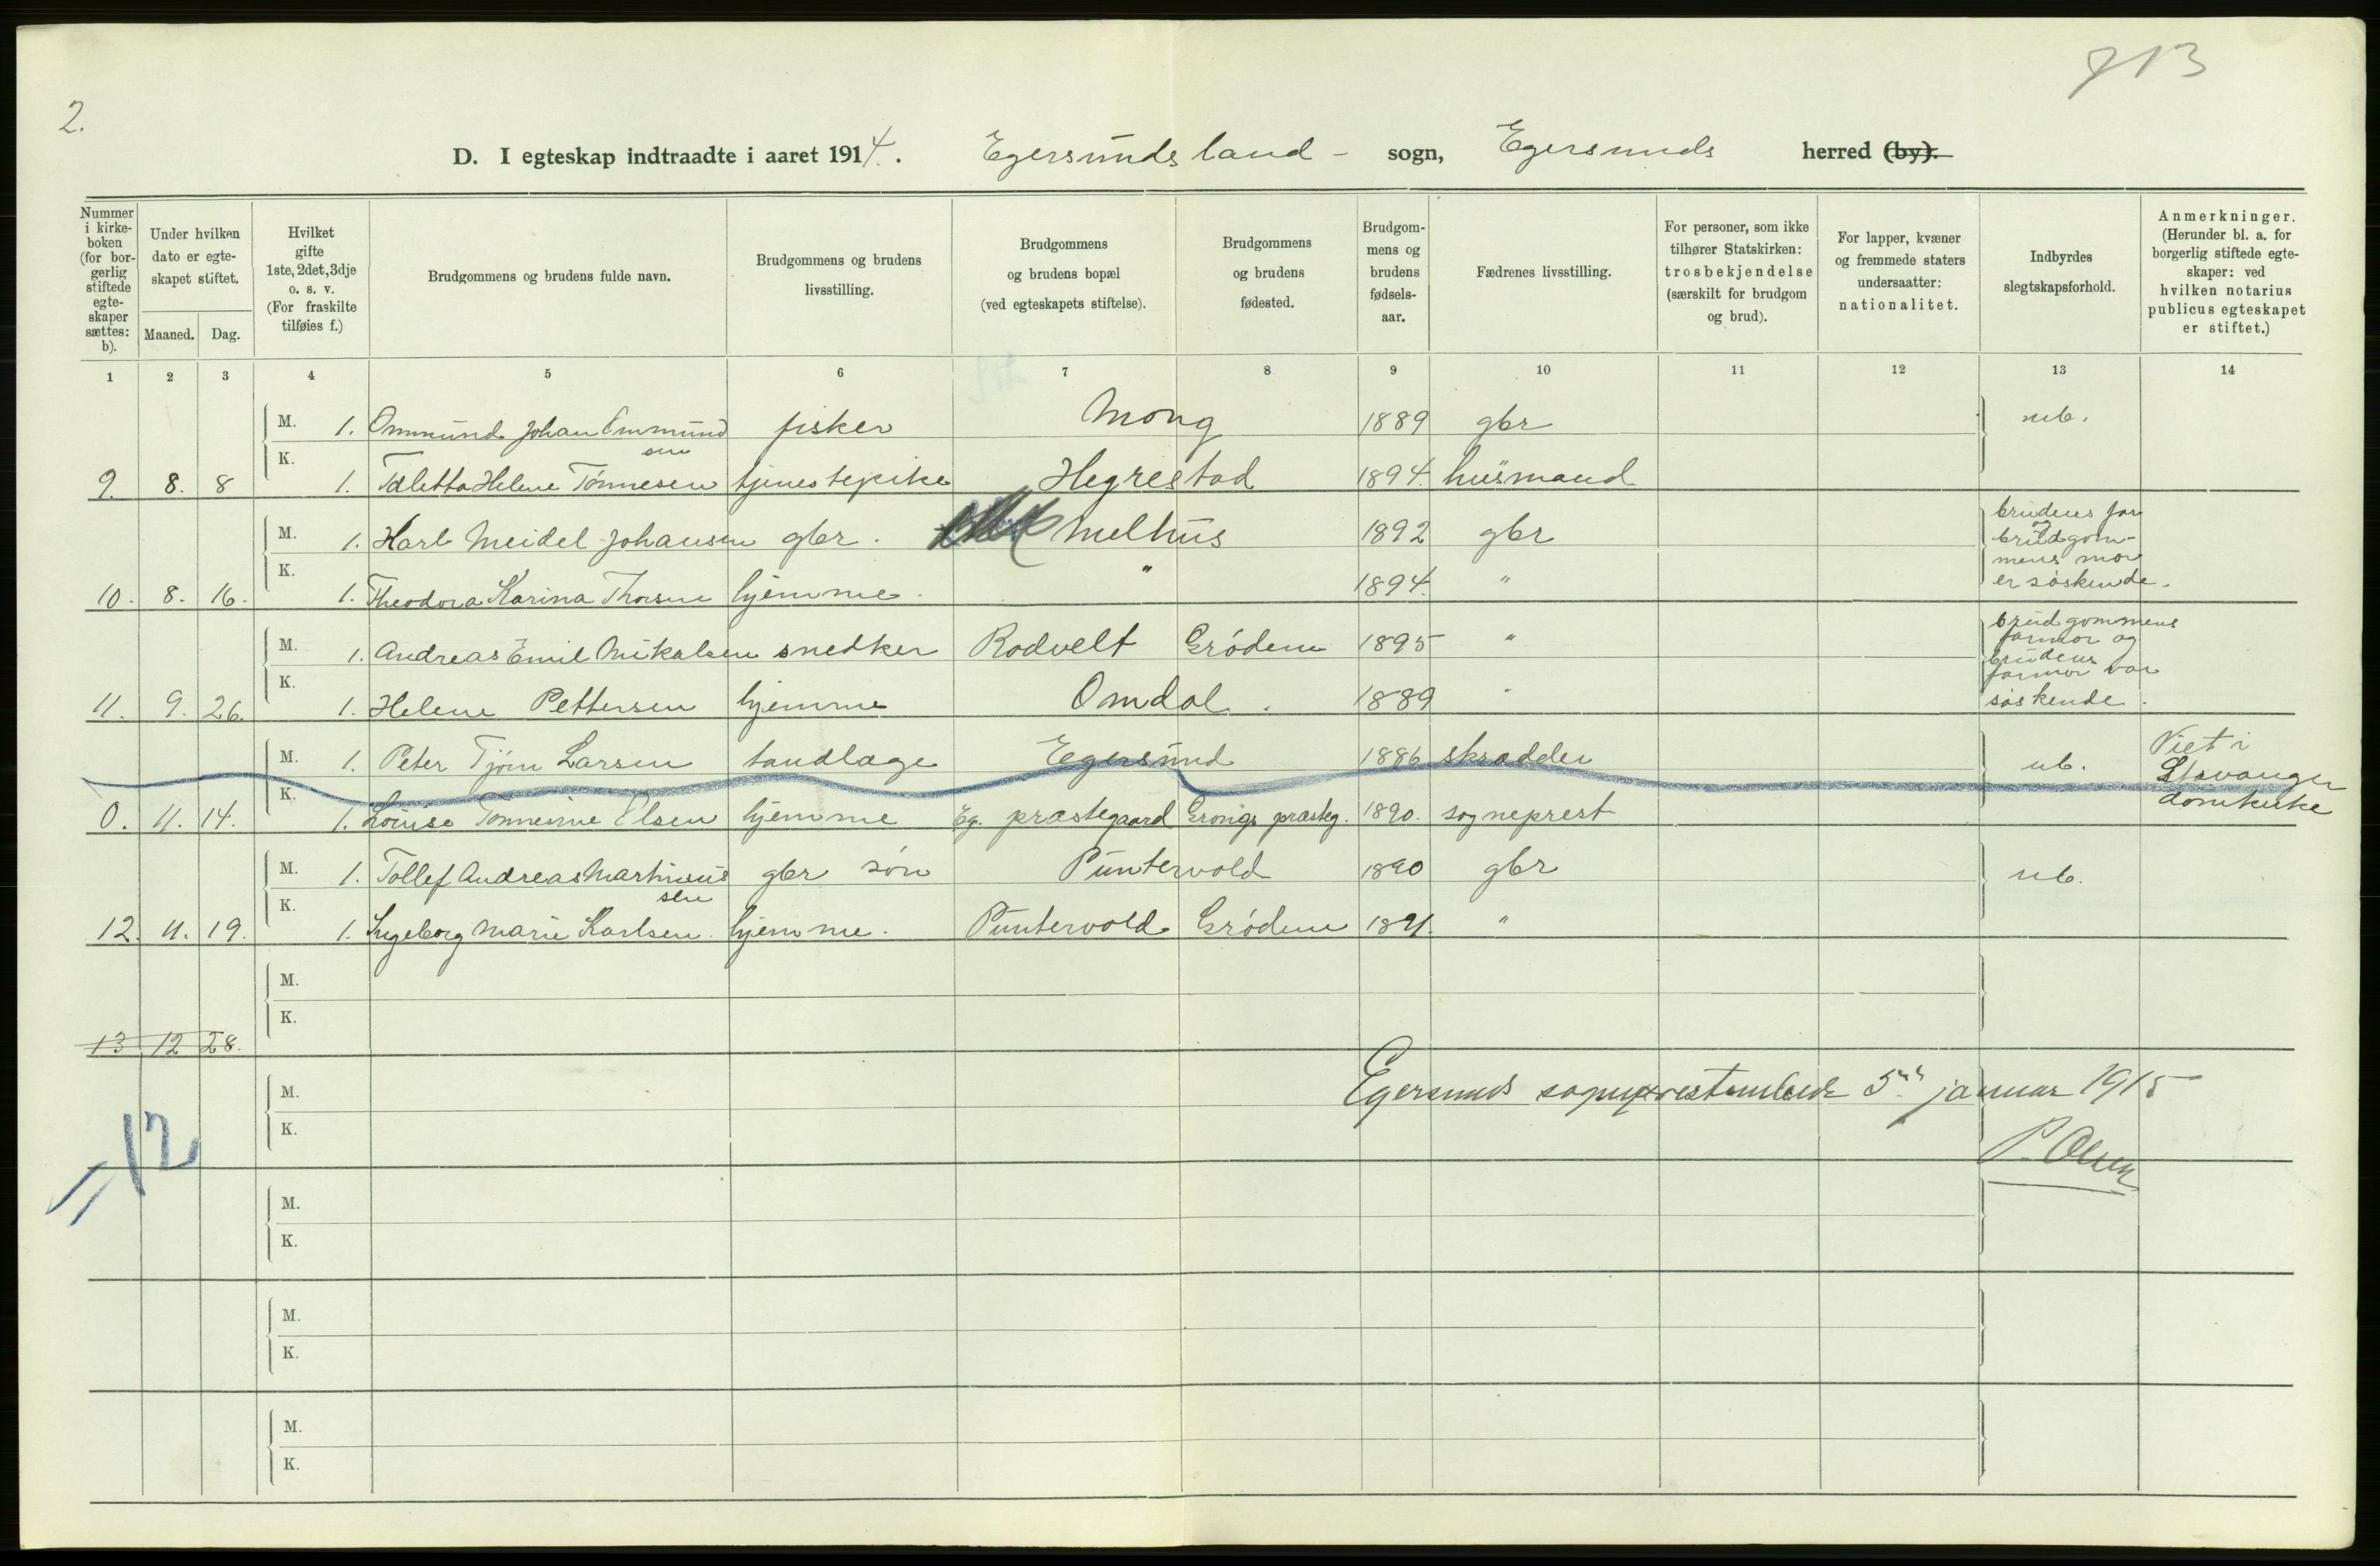 713
2.
D. I egteskap indtraadte i aaret 1914. Egersunds land - sogn, Egersunds herred (by).
Nummer i kirke-boken (for bor-gerlig stiftede egte-skaper sættes: b).
Under hvilken dato er egte-skapet stiftet.
Maaned. Dag.
Hvilket gifte 1ste, 2det, 3dje o. s. v. (For fraskilte tilføies f.)
Brudgommens og brudens fulde navn.
Brudgommens og brudens livsstilling.
Brudgommens og brudens bopæl (ved egteskapets stiftelse).
Brudgommens og brudens fødested.
Brudgom-mens og brudens fødsels-aar.
Fædrenes livsstilling.
For personer, som ikke tilhører Statskirken: trosbekjendelse (særskilt for brudgom og brud).
For lapper, kvæner og fremmede staters undersaatter: nationalitet.
Indbyrdes slegtskapsforhold.
Anmerkninger. (Herunder bl. a. for borgerlig stiftede egte-skaper: ved hvilken notarius publicus egteskapet er stiftet.)
1 2 3 4 5 6 7 8 9 10 11 12 13 14
M. 1. Ommund Johan Ommund sen fisker Mong 1889 gbr ub.
9. 8. 8 K. 1. Taletta Helene Tønnesen tjenestepike Hegrestad 1894. husmand
M. 1. Karl Meidel Johansen gbr. Melhus 1892 gbr brudens far og brudgom-mens mor er søskende.
10. 8. 16. K. 1. Theodora Karina Thorsen hjemme. " 1894. "
M. 1. Andreas Emil Mikalsen snedker Rodvelt Grøden 1895 " brudgommens farmor og brudens farmor var søskende.
11. 9. 26. K. 1. Helene Pettersen hjemme Omdal. 1889 "
M. 1. Peter Tjørn Larsen tandlæge Egersund 1886 skrædder ub. Viet i Stavanger domkirke
0. 11. 14. K. 1. Louise Tonnesine Olsen hjemme Eg. præstegaard Grongs præsteg. 1890. sogneprest
M. 1. Tollef Andreas Martinius sen gbr søn Puntervold 1890 gbr ub.
12. 11. 19. K. 1. Ingeborg Marie Karlsen. hjemme. Puntervold Grøden 1891. "
M.
13 12 28. K.
M. Egersunds sogneprestembede 5. januar 1915
K.
12 P. Olsen
M.
K.
M.
K.
M.
K.